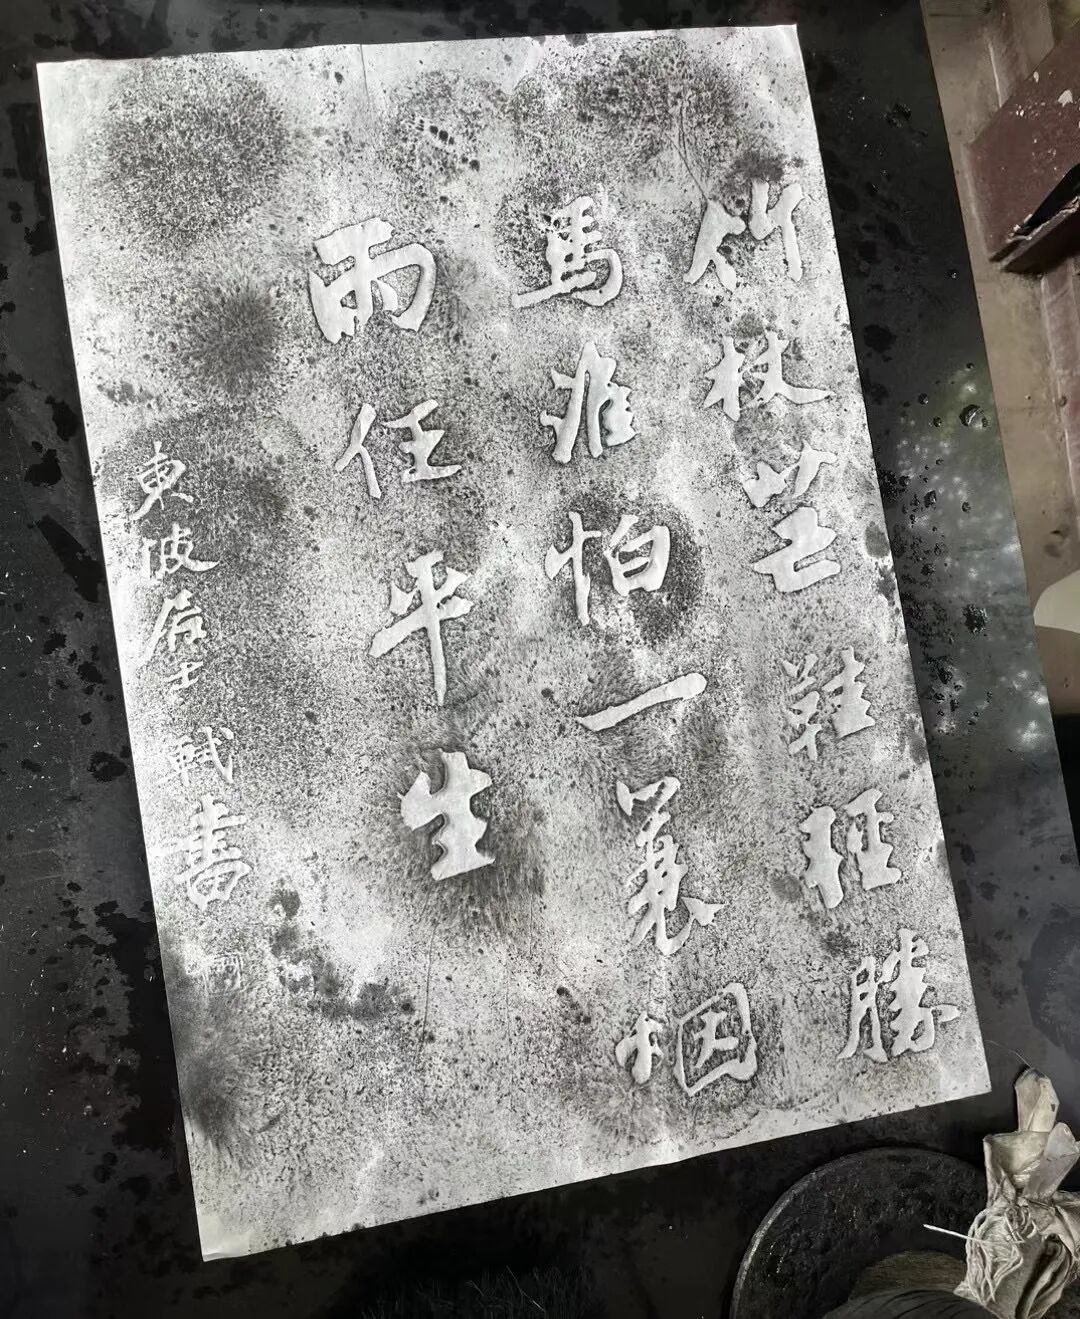 竹杖芒鞋輕勝
馬誰怕一蓑烟
雨任平生
東坡居士軾書